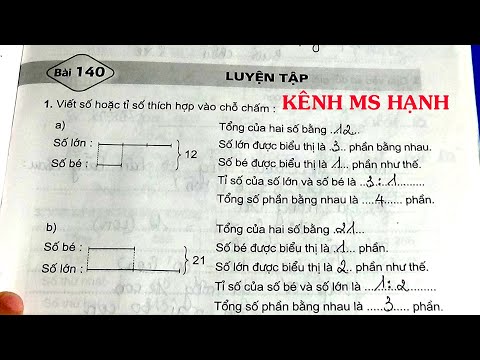 Bài 140
LUYỆN TẬP
1. Viết số hoặc tỉ số thích hợp vào chỗ chấm :
KÊNH MS HẠNH
a)
Số lớn :
Số bé :
12
Tổng của hai số bằng .12..
Số lớn được biểu thị là 3.. phần bằng nhau.
Số bé được biểu thị là 1... phần như thế.
Tỉ số của số lớn và số bé là ..3:1.......
Tổng số phần bằng nhau là ....4...... phần.
b)
Số bé :
Số lớn :
21
Tổng của hai số bằng .21...
Số bé được biểu thị là .1... phần.
Số lớn được biểu thị là 2.. phần như thế.
Tỉ số của số bé và số lớn là ...1:2........
Tổng số phần bằng nhau là .....3..... phần.